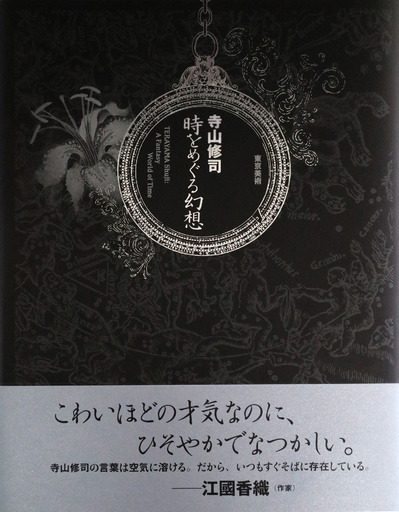 寺山修司
時をめぐる幻想
TERAYAMA Shuji:
A Fantasy
World of Time
東京美術
こわいほどの才気なのに、
ひそやかでなつかしい。
寺山修司の言葉は空気に溶ける。だから、いつもすぐそばに存在している。
——江國香織(作家)